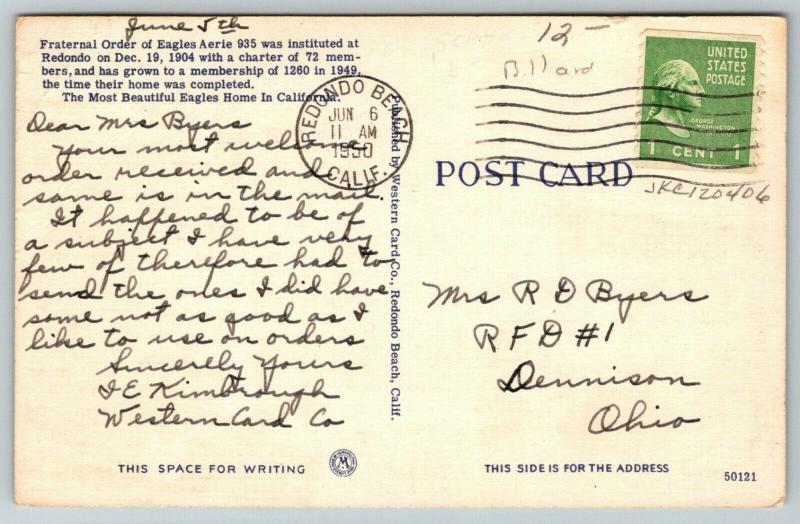 June 5th
Fraternal Order of Eagles Aerie 935 was instituted at
Redondo on Dec. 19, 1904 with a charter of 72 mem-
bers, and has grown to a membership of 1260 in 1949,
the time their home was completed.
The Most Beautiful Eagles Home In California.
Dear Mrs Byers
Your most welcome
order received and
same is in the mail.
It happened to be of
a subject I have very
few of therefore had to
send the ones I did have
some not as good as I
like to use on orders
Sincerelly Yours
I E Kimbrough
Western Card Co
THIS SPACE FOR WRITING
Published by Western Card Co., Redondo Beach, Calif.
REDONDO BEACH
JUN 6
11 AM
1950
CALIF.
12-
Billard
UNITED
STATES
POSTAGE
GEORGE
WASHINGTON
1 CENT 1
POST CARD
JKC120406
Mrs R D Byers
R F D #1
Dennison
Ohio
THIS SIDE IS FOR THE ADDRESS
50121